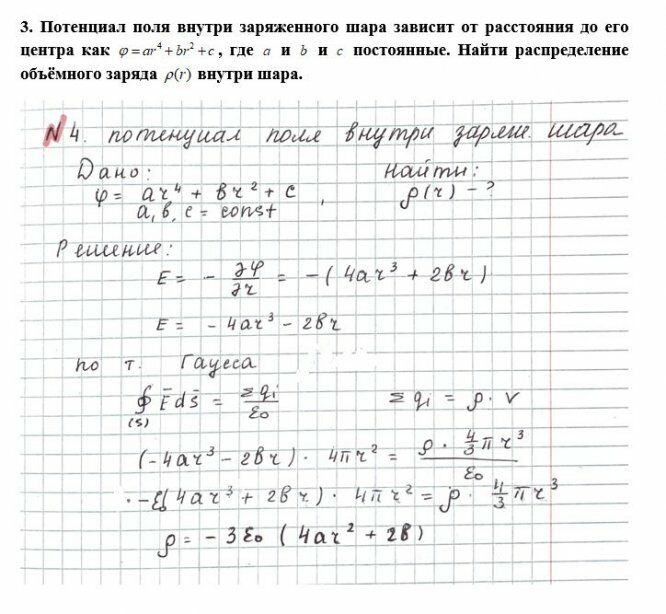 3. Потенциал поля внутри заряженного шара зависит от расстояния до его
центра как φ=ar⁴+br²+c, где a и b и c постоянные. Найти распределение
объёмного заряда ρ(r) внутри шара.
N 4. потенциал поля внутри заряж. шара
Дано: Найти:
φ = ar⁴ + br² + c , ρ(r) - ?
a, b, c = const
Решение:
E = - ∂φ/∂r = -(4ar³ + 2br)
E = - 4ar³ - 2br
по т. Гаусса
∮(S) E̅ds̅ = Σqi/ε₀ Σqi = ρ · V
(-4ar³ - 2br) · 4πr² = ρ · 4/3 πr³/ε₀
-ε₀(4ar³ + 2br) · 4πr² = ρ · 4/3 πr³
ρ = - 3ε₀ (4ar² + 2b)